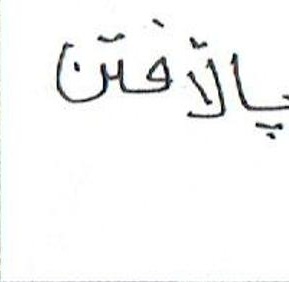 پالآفتن